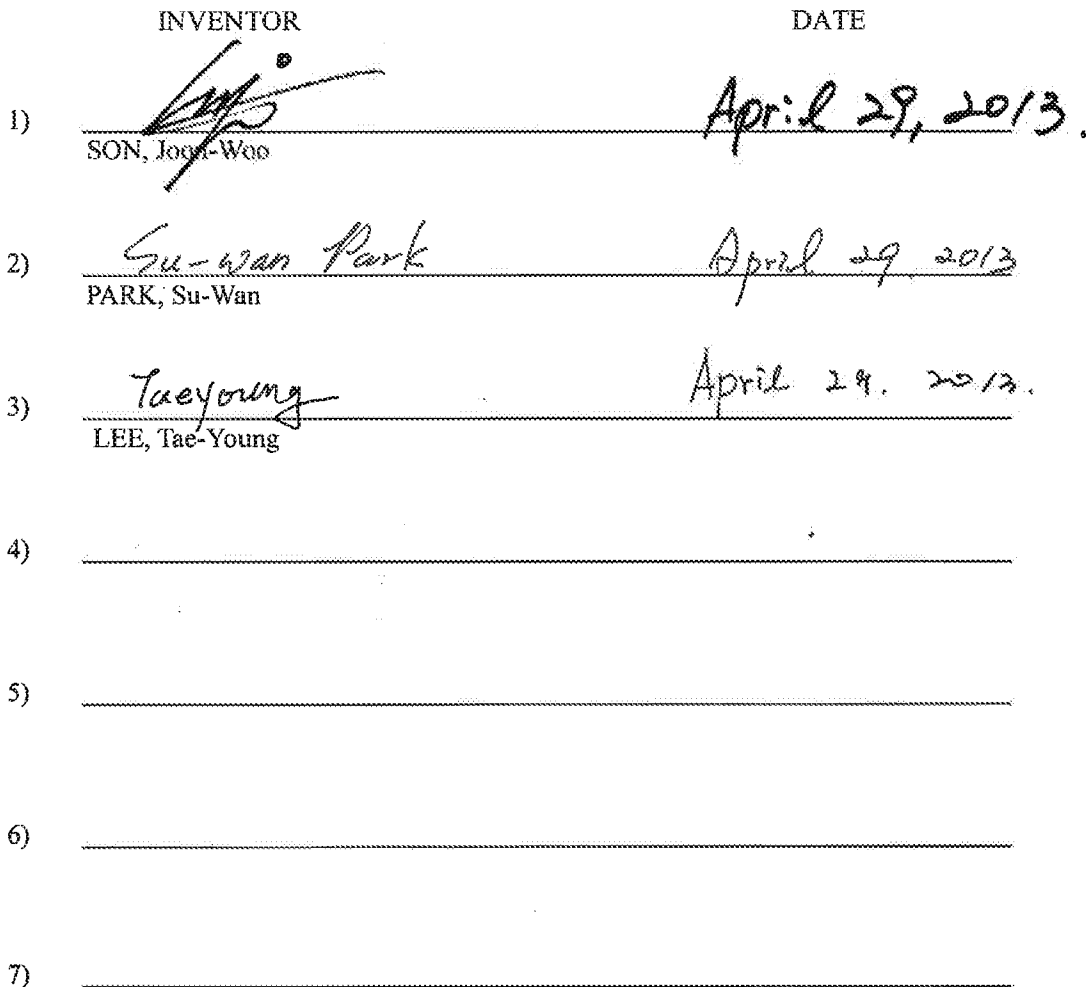 INVENTOR DATE
1) April 29, 2013.
SON, Joon-Woo
2) Su-wan Park April 29, 2013
PARK, Su-Wan
3) Taeyoung April 29. 2013.
LEE, Tae-Young
4)
5)
6)
7)